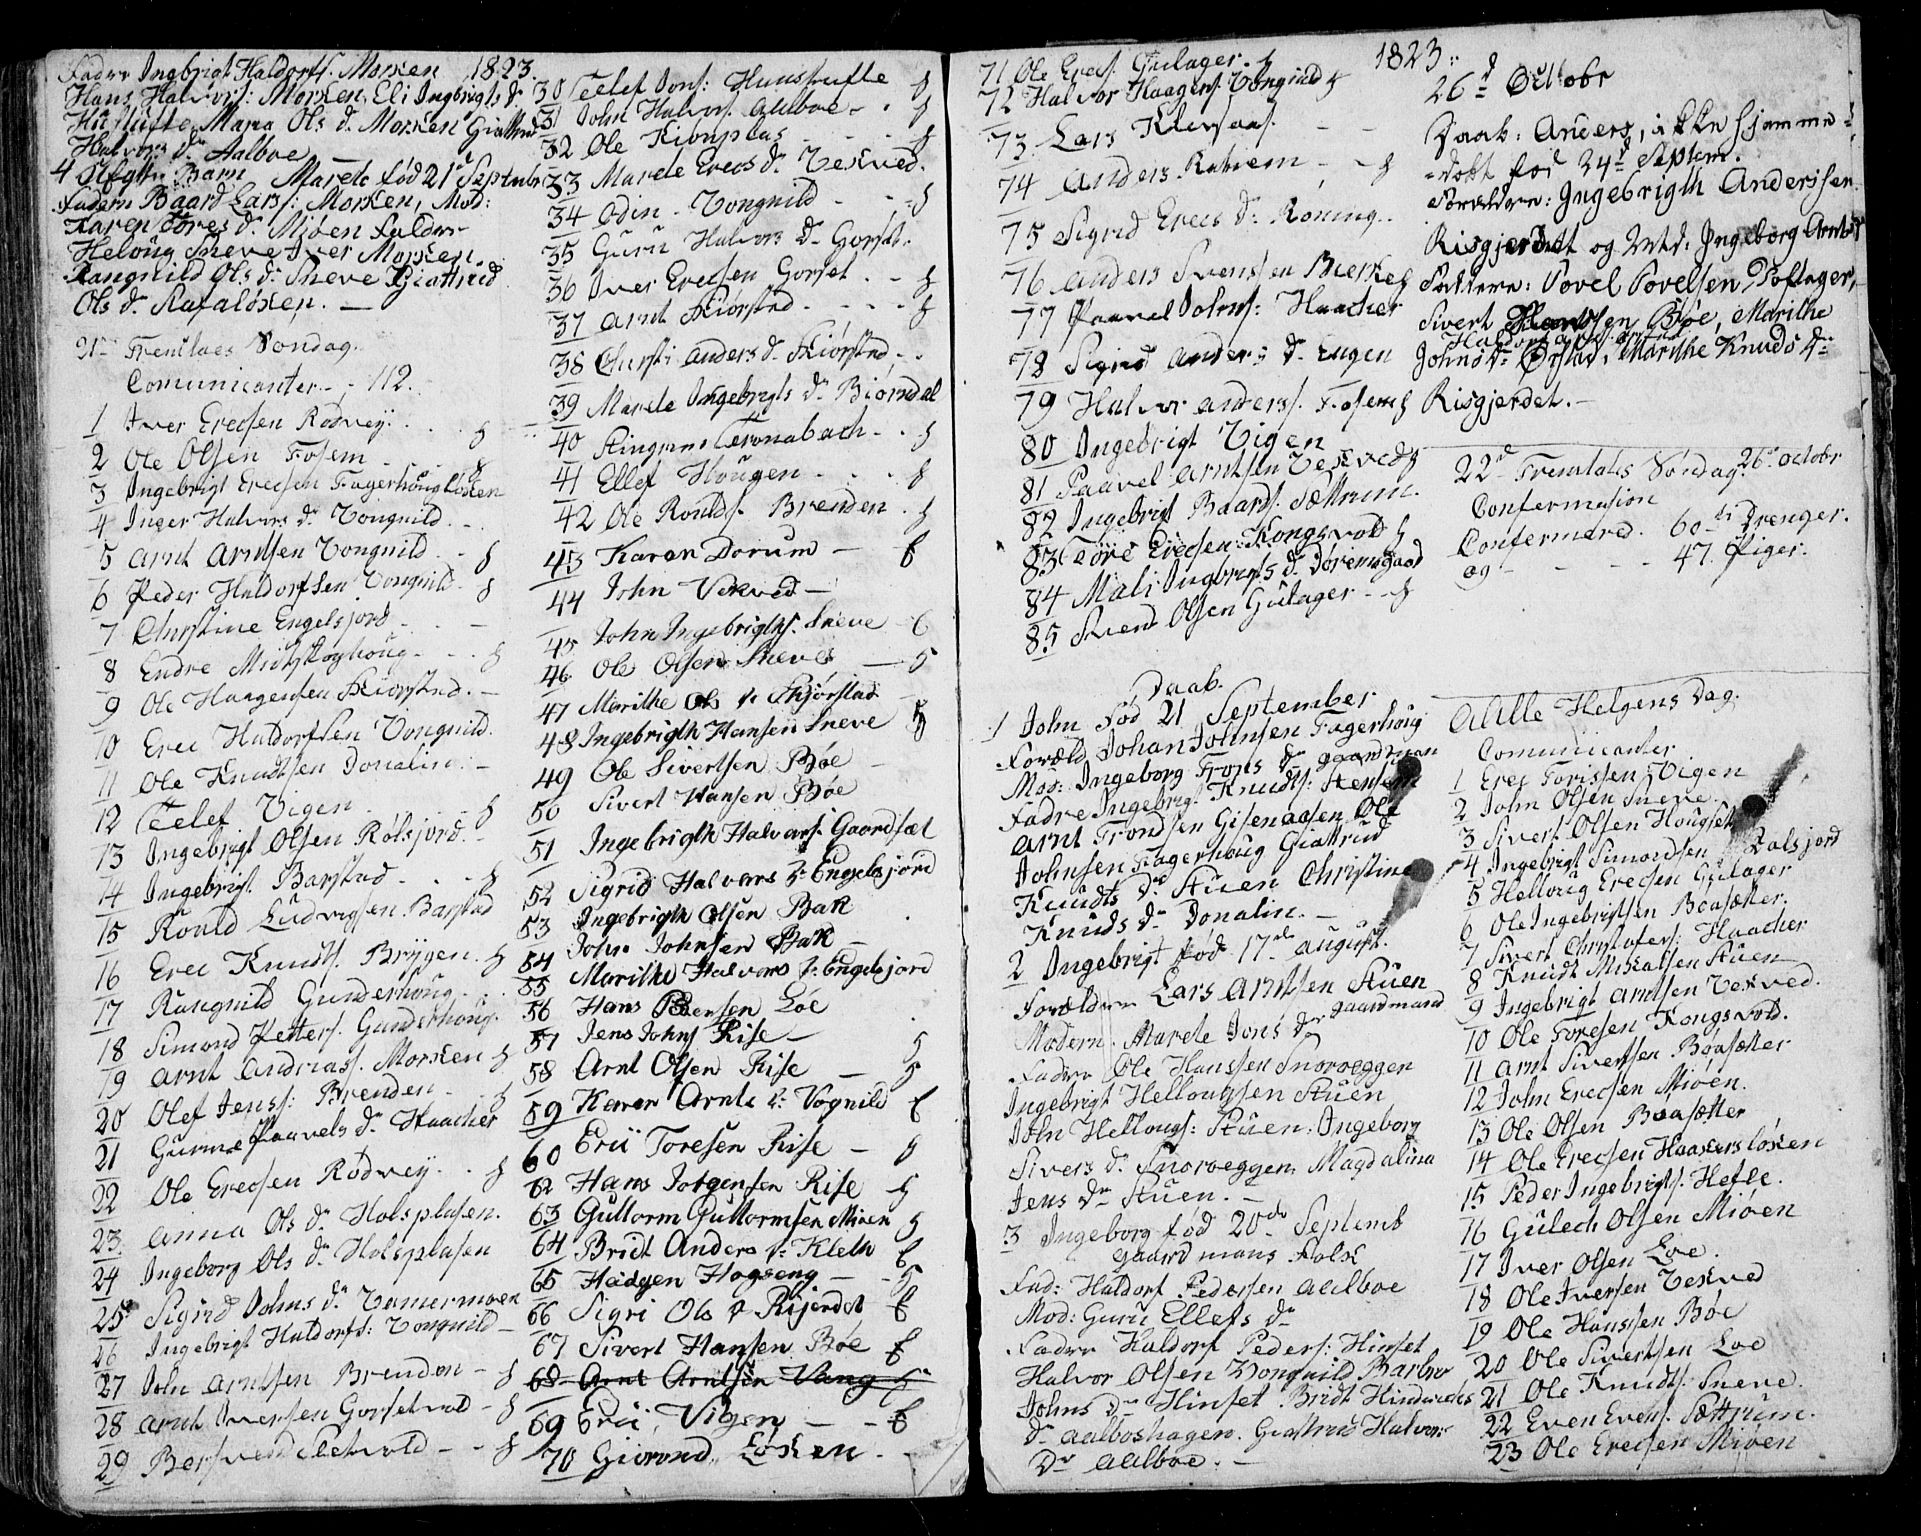 Fadre Ingbrigt Haldorfs. Morken 1823.
Hans Halvors: Morken, Eli Ingbrigts d.
Maria Ols d. Morken Giattrud
Halvors dr Aalboe —
4 Barn Marete fød 21 Septebr
Fadern Baard Larss: Morken, Mod:
Karen Tores d. Miøen Faldre
Heloug Sneve Iver Morken.
Rangnild Ols dr Sneve Giattrud
Ols dr —
21de Tremitaes Søndag.
Comunicanter - - 112.
1 Iver Erecsen Rødvey. . . . §
2 Ole Olsen Fosem . . §
3 Ingebrigt Erecsen Fagerhougløken
4 Inger Halvors dr Vongnild. - -
5 Arnt Arntsen Vongnild. . . §
6 Peder Haldorfsen Vongnild. §
7 Christine Engelsjord . - -
8 Endre Midtskoghoug. . . . §
9 Ole Haagensen Kiorstad. —
10 Erec Haldorfsen Vongnild.
11 Ole Knudtsen Donalin. —
12 Eelef Vigen . . . §
13 Ingebrigt Olsen Rølsjord. -
14 Ingebrigt Barstad. . . . §
15 Roald Ludvigsen Barstad
16 Erec Knudts. Bryggen. §
17 Rangnild Gunderhoug.
18 Simond Petters. Gunderhoug.
19 Arnt Andreas. Morken §
20 Olef Jenss: Brenden . . §
21 Gunnil Paavels dr Haacher
22 Ole Erecsen Rødvey. . §
23 Anna Ols dr Holsplasen.
24 Ingeborg Ols dr Holsplasen
25 Sigrid Johns dr Vamermoen
26 Ingebrigt Haldorfs: Vongnild —
27 John Arntsen Brenden - §
28 Arnt Iversen Gorsetrød - §
29 - - §
30 Eelef Jons: Hunstufte §
31 John Halvors. Aalboe - . §
32 Ole Kionplas . . . §
33 Marete Erecs dr Vekved.
34 Odin . Vongnild - . - §
35 Guru Halvors dr Gorset.
36 Iver Erecsen Gorset . . §
37 Arnt Kiorstad . . . . §
38 Chirsti Anders dr Kiorstad . .
39 Marete Ingebrigts dr Biørndal
40 . . §
41 Ellef Hougen . . . . §
42 Ole Roalds. Brenden . §
43 Karen Dorum — §
44 John Vekved —
45 John Ingebrigths. Sneve - §
46 Ole Olsen Sneve — §
47 Marithe Ols dr Skjørstad
48 Ingebrigth Hansen Sneve §
49 Ole Sivertsen Bøe —
50 Sivert Hansen Bøe
51 Ingebrigth Halvors. Gaardsæt
52 Sigrid Halvors dr Engelsjord
53 Ingebrigth Olsen Bak
54 John Johnsen Bak —
55 Marithe Halvors dr Engelsjord
56 Hans Pedersen Loe
57 Jens Johns Rise — §
58 Arnt Olsen Rise — §
59 Karen Arnts dr Vognild §
60 Erii Toresen Rise — §
62 Hans Jørgensen Rise — §
63 Guttorm Guttormsen Miøen §
64 Bridt Anders dr Kleth §
65 Haagen Hogseng — - §
66 Sigri Ols dr Risjerdet §
67 Sivert Hansen Bøe §
68 Arnt Arntsen Vang §
69 Erii Vigen — - §
70 Giørond Løken - -
71 Ole Erecs. Gulager. §
72 Halvor Haagens. Vongnild §
73 Lars Klevsaas. — —
74 Anders Ratrem - - §
75 Sigrid Erecs dr Roning . .
76 Anders Svensen Bierke §
77 Paavel Johns: Haacher
78 Sigrid Anders dr Engen
79 Halvor Anderss. Fosem §
80 Ingebrigt Vigen
81 Paavel Arntsen Vekved §
82 Ingebrigt Baards. Sættrum.
83 Tore Erecsen Kongsvold §
84 Mali Ingbrigts dr Dørremsgaard
85 Svend Olsen Gulager - - §
Daab.
1 John Fød 21 September
Foræld. Johan Johnsen Fagerhoug
Mod: Ingeborg Trons dr gaardman
Fadre Ingebrigt Knudts: Stensem
Arnt Trondsen Gisenaasen Ole
Johnsen Fagerhoug Giattrud
Knudts dr Stuen Christine
Knuds dr Donalin. —
2 Ingebrigt fød 17de August.
Forældre Lars Arntsen Stuen
Modern. Marete Jons dr gaardmand
Fadre Ole Hanssen Snoroeggen
Ingebrigt Hellougsen Stuen
John Hellougs: Stuen. Ingeborg
Sivers dr Snoroeggen Magdalina
Jens dr Stuen. —
3 Ingeborg fød 20de Septemb
gaardmans Folk
Fad: Haldorf Pedersen Aalboe
Mod: Guru Ellefs dr
Fadre Haldorf Peders: Hinset
Halvor Olsen Vongnild Barbro
Johns dr Hinset Bridt Hindricks
dr Aalboshagen. Giattrud Halvors
Dr Aalboe. —
1823:
26d Octobr
Daab: Anders, ikke hjemme-
-døbt fød 24d Septem.
Forældre: Ingebrigth Anderssen
Risgjerdet og Mod: Ingeborg Arntsd
Faddere: Povel Povelsen Poflager,
Sivert Bøe, Marithe
Johns dr Ørstad, Marithe Knuds dr
Risgjerdet. —
22d Tremitaes Søndag. 26d octobr
Confermation
Confermered. 60 Drenger.
og - - - - 47. Piger.
Alle Helgens Dag.
Comunicanter
1 Erec Torissen Vigen
2 John Olsen Sneve.
3 Sivert Olsen Hougset
4 Ingebrigt Simondsen Rølsjord
5 Helloug Erecsen Gulager
6 Ole Ingebrigtsen Boasætter.
7 Sivert Christofers: Haacher
8 Knudt Mikalsen Stuen
9 Ingebrigt Arntsen Vekved.
10 Ole Toresen Kongsvold.
11 Arnt Sivertsen Boasætter
12 John Erecsen Miøen.
13 Ole Olsen Boasætter
14 Ole Erecsen Haakersløken
15 Peder Ingebrigts. Hefle.
16 Gulech Olsen Miøen
17 Iver Olsen Loe.
18 Ole Iversen Vekved
19 Ole Hanssen Bøe
20 Ole Sivertsen Loe
21 Ole Knudts. Sneve.
22 Even Evens. Sættrum.
23 Ole Erecsen Miøen